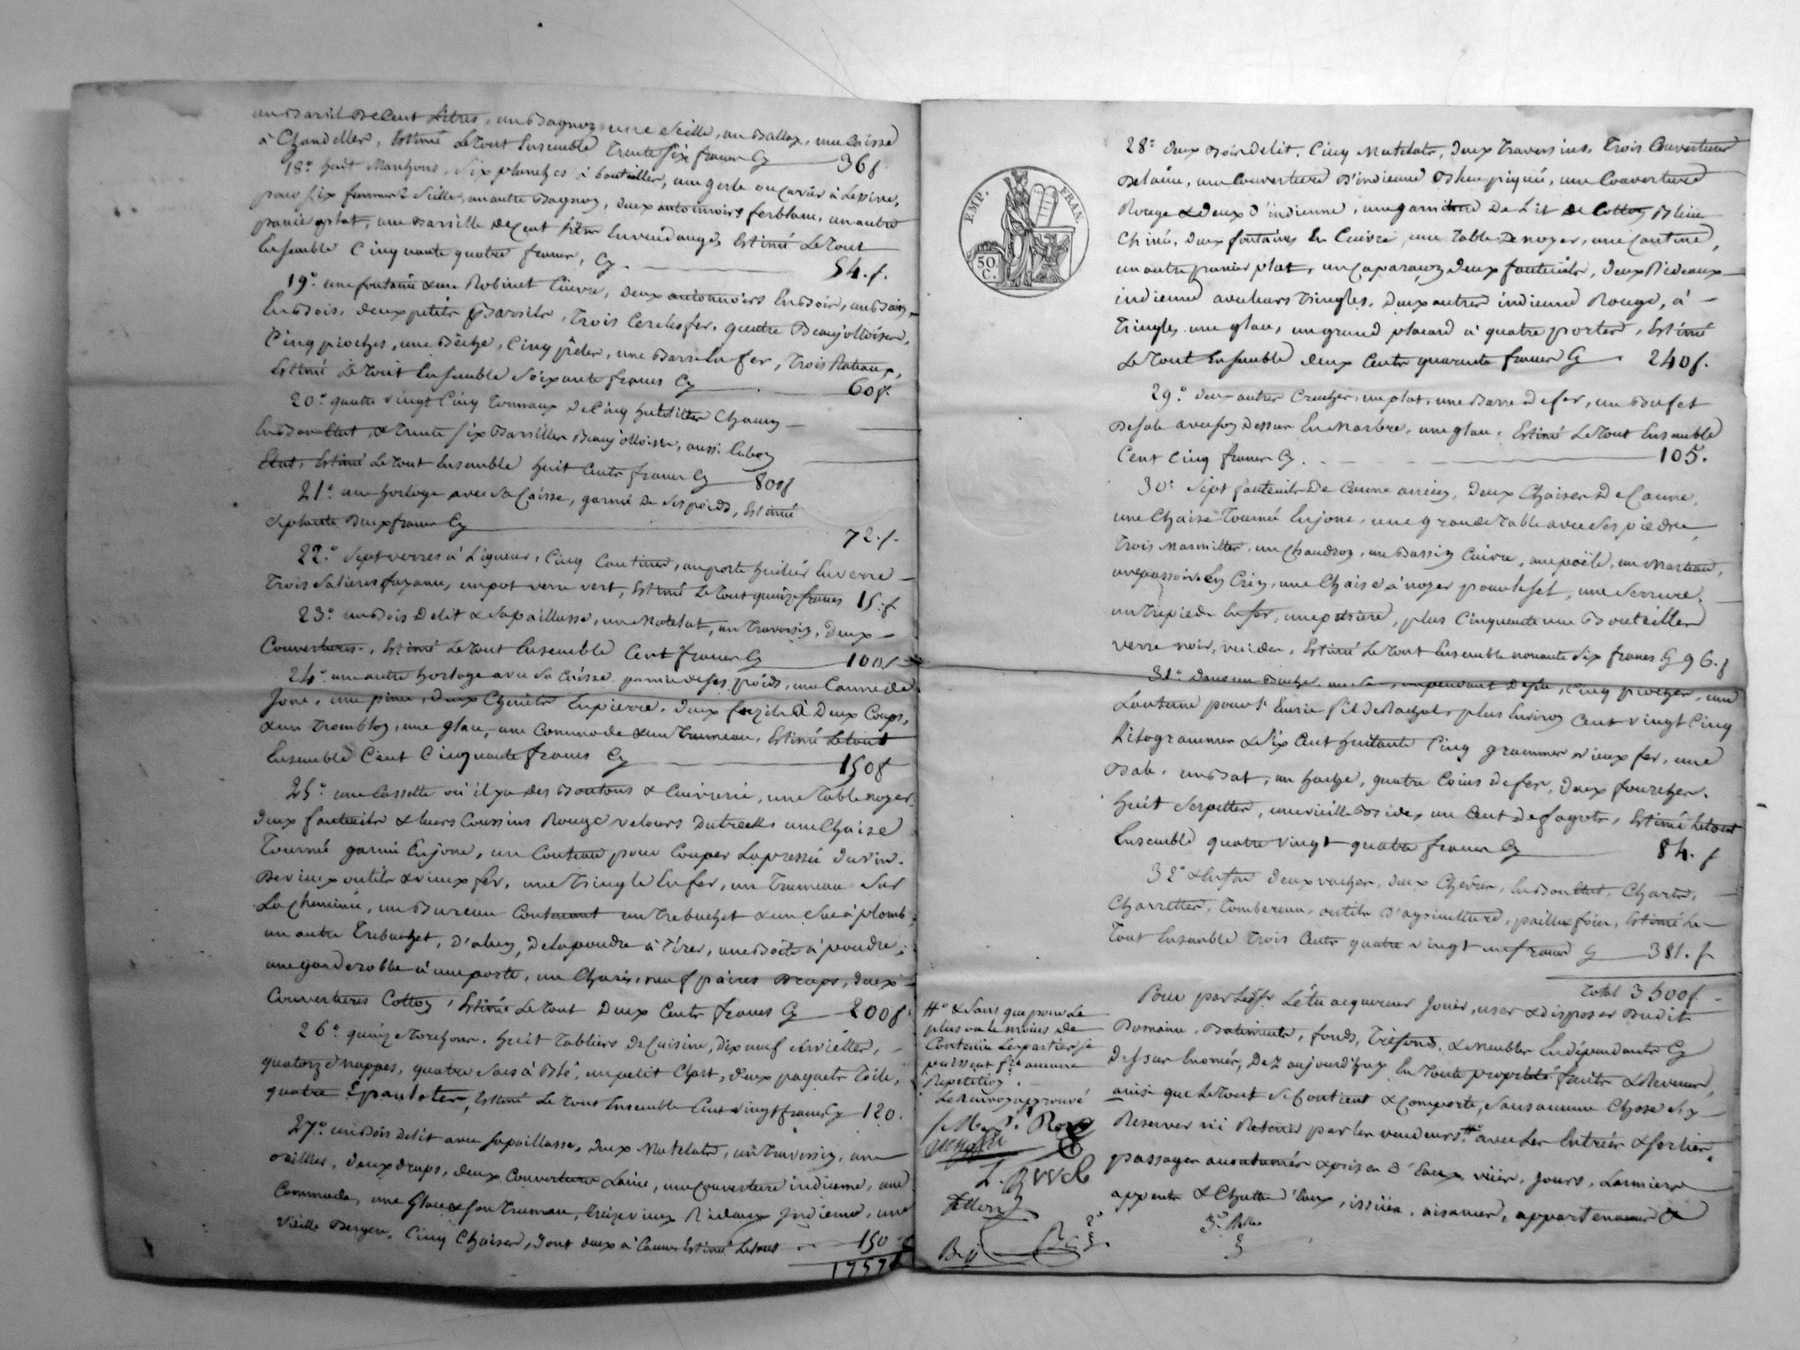 un Baril de Cent Litres, un Bagnoz, une Seille, un Ballox, une Caisse
à Chandelles, Estimé Le Tout Ensemble Trente Six francs Cy 36 f
18.° huit Manchons, Six planches à bouteilles, une gerle ou Cuvier à Lessive,
un autre Bagnoz, deux entonnoirs ferblanc, un autre
panier plat, une Barille de Cent Litres Estimé Le Tout
Ensemble Cinquante quatre francs, Cy 54. f.
19.° une fontaine & un Robinet Cuivre, deux entonnoirs En Bois, un
En Bois, deux petits Barils, Trois Cercles fer, quatre Beaujolloises,
Cinq pioches, une Bêche, Cinq pêles, une Barre En fer, Trois Rateaux,
Estimé Le Tout Ensemble Soixante francs Cy 60 f.
20.° quatre vingt Cinq Tonneaux de Cinq hectolitres Chacun
En Bon Etat, & Trente Six Barilles Beaujolloises, aussi En bon
Etat, Estimé Le Tout Ensemble huit Cents francs Cy 800 f
21.° une horloge avec Sa Caisse, garnie de Ses poids, Estimé
Septante Deux francs Cy 72. f.
22.° Sept verres à Liqueur, Cinq un porte huilier En verre
Trois Salieres fayance, un pot verre vert, Estimé Le Tout quinze francs 15. f
23.° un Bois De lit & Sa paillasse, un Matelat, un Traversin, Deux
Couvertures, Estimé Le Tout Ensemble Cent francs Cy 100 f
24.° une autre horloge avec Sa Caisse garnie de Ses poids, une Canne de
Jonc, une deux Chenets En pierre, deux fuzils à Deux Coups,
& un Tromblon, une glace, une Commode & un Trumeau, Estimé Le tout
Ensemble Cent Cinquante francs Cy 150 f
25.° une Cassette où il y a des Boutons & Cuivrerie, une Table noyer,
Deux fauteuils & leurs Coussins Rouge velours une Chaise
Tournée garnie En jonc, un Couteau pour Couper La pressée du vin,
De vieux outils & vieux fer, une Tringle En fer, un Trumeau Sur
La Cheminée, un Bureau Contenant un Trebuchet & un Sac à plomb,
un autre Trebuchet, De La poudre à Tirer, une Boîte à poudre,
une garderobbe à une porte, un neuf paires Draps, deux
Couvertures Cotton, Estimé Le Tout Deux Cents francs Cy 200 f
26.° quinze Torchons, huit Tabliers de Cuisine, Dix neuf Serviettes,
quatorze nappes, quatre Sacs à Blé, un petit deux paquets Toile,
quatre Epaulettes, Estimé Le Tout Ensemble Cent vingt francs Cy 120.
27.° un Bois De lit avec Sa paillasse, deux Matelats, un Traversin, un
oreiller, deux draps, deux Couvertures Laine, une Couverture indienne, une
Commode, une Glace & Son Trumeau, Rideaux Indienne, une
vieille Bergere, Cinq Chaises, dont deux à Cannes Estimé Le tout 150 f
1757 f
EMP. FRAN.
50 C.
28.° deux Bois de lit, Cinq Matelats, deux Traversins, Trois Couvertures
De laine, une Couverture D'indienne Bleu piquée, une Couverture
Rouge & deux d'indienne, une garniture De Lit de Cotton Bleue
Chinée, deux fontaines En Cuivre, une Table de noyer, une Cantine,
un autre panier plat, un Caparaçon, deux fauteuils, deux Rideaux
indienne avec leurs Tringles, Deux autres indienne Rouge, à
Tringles, une glace, un grand placard à quatre portes, Estimé
Le Tout Ensemble deux Cents quarante francs Cy 240 f.
29.° deux autres Cruches, un plat, une Barre de fer, un Bufet
avec Son Dessus En Marbre, une glace, Estimé Le Tout Ensemble
Cent Cinq francs Cy 105.
30.° Sept fauteuils De Canne deux Chaises De Canne,
une Chaise Tournée En jonc, une grande Table avec Ses pieds,
Trois Marmittes, un Chaudron, un Bassin Cuivre, une poële, un Marteau,
un passoir En Crin, une Chaise à noyer pour le Sel, une Serrure,
un Trepied En fer, plus Cinquante une Bouteilles
verre noir, vuides, Estimé Le Tout Ensemble nonante Six francs Cy 96. f
31.° Dans un Bucher, Cinq pioches, une
Lanterne pour L'Ecurie fil de plus Environ Cent vingt Cinq
Kilogrammes & Six Cent huitante Cinq grammes vieux fer, une
un Bat, un hache, quatre Coins de fer, Deux fourches,
huit Serpettes, une vieille Bride, un Cent de fagots, Estimé Le tout
Ensemble quatre vingt quatre francs Cy 84. f
32.° & Enfin deux vaches, deux Chèvres, En Bon Etat, Chars,
Charrettes, Tombereau, outils D'agriculture, paille & foin, Estimé Le
Tout Ensemble Trois Cents quatre vingt un francs Cy 381. f
Total 3500 f.
Pour par Led. Sr. L'élu acquereur jouir, user & disposer Dudit
Domaine, Batiments, fonds, Tréfonds, & Meubles En dépendants Cy
Dessus Enoncés, Dez aujourd'huy En Toute propriété fruits & Revenus,
ainsi que Le Tout Se Contient & Comporte, Sans aucune Chose S'y
Reserver ni Retenir par les vendeurs # avec Les Entrées & Sorties,
passages accoutumés & prises d'Eaux, vües, jours, Larmiers
appents & Chutte d'Eaux, issües, aisances, appartenances &
# & Sans que pour Le
plus ou le moins de
Contenüe Les parties Se
puissent fre aucune
Repetition.
Le Renvoy approuvé